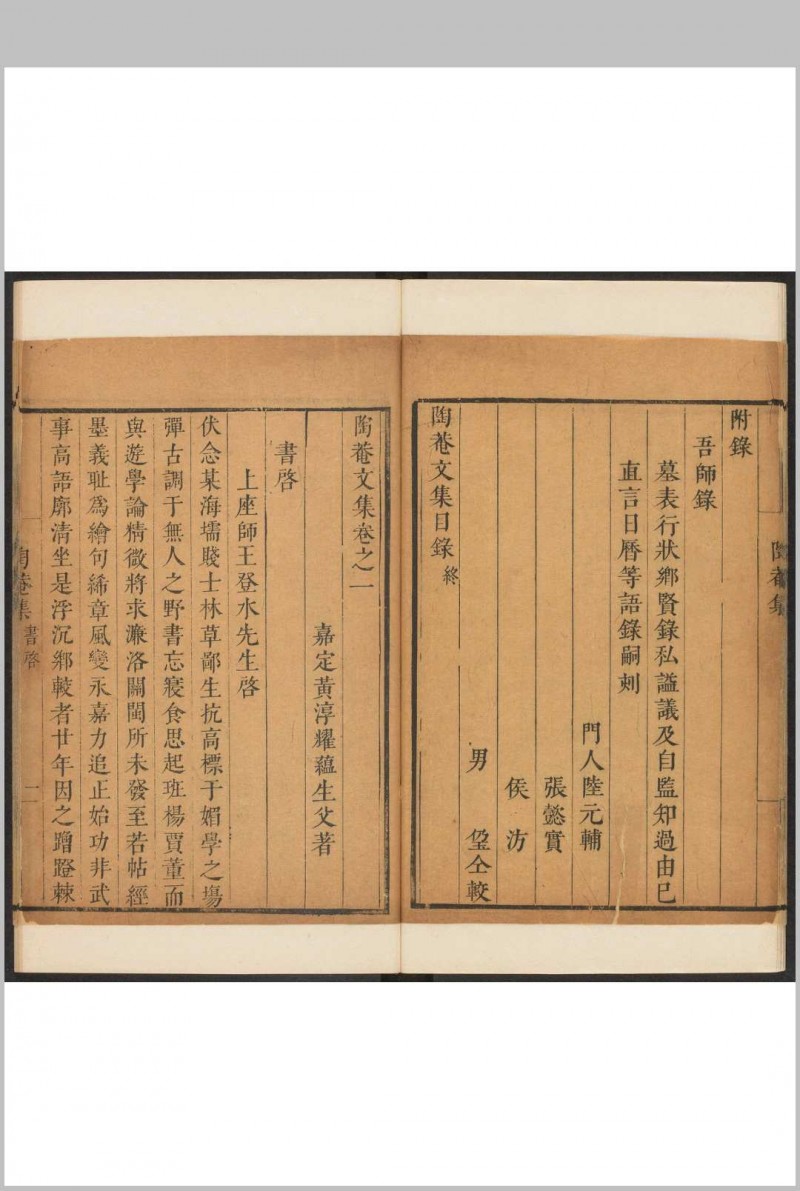 附錄
吾師錄
墓表行狀鄉賢錄私謚議及自監知過由已
直言日曆等語錄嗣刻
門人陸元輔
張懿實
侯汸
男 仝較
陶菴文集目錄終
陶菴集
陶菴文集卷之一
嘉定黃淳耀蘊生父著
書啓
上座師王登水先生啓
伏念某海壖賤士林草鄙生抗高標于媚學之場
彈古調于無人之野書忘寢食思起班楊賈董而
與遊學論精微將求濂洛關閩所未發至若帖經
墨義耻爲繪句絺章風變永嘉力追正始功非武
事高語廓清坐是浮沉鄉較者廿年因之蹭蹬棘
陶菴集 書啓 一